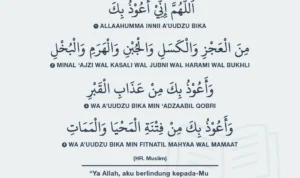 اَللّٰهُمَّ إِنِّيْ أَعُوْذُ بِكَ
ALLAAHUMMA INNII A'UUDZU BIKA
مِنَ الْعَجْزِ وَالْكَسَلِ وَالْجُبْنِ وَالْهَرَمِ وَالْبُخْلِ
MINAL 'AJZI WAL KASALI WAL JUBNI WAL HARAMI WAL BUKHLI
وَأَعُوْذُ بِكَ مِنْ عَذَابِ الْقَبْرِ
WA A'UUDZU BIKA MIN 'ADZAABIL QOBRI
وَأَعُوْذُ بِكَ مِنْ فِتْنَةِ الْمَحْيَا وَالْمَمَاتِ
WA A'UUDZU BIKA MIN FITNATIL MAHYAA WAL MAMAAT
(HR. Muslim)
"Ya Allah, aku berlindung kepada-Mu